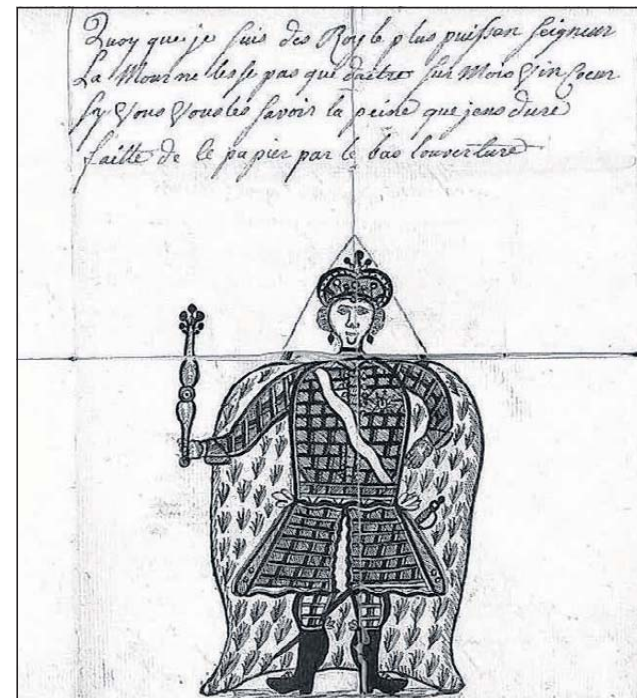 Quoy que je suis des Roy le plus puissan seigneur
La Mour ne lesse pas que daitre sur Mois Vin Coeur
sy Vous Vousles savoir la peine que jens dure
faitte de le papier par le bas louverture